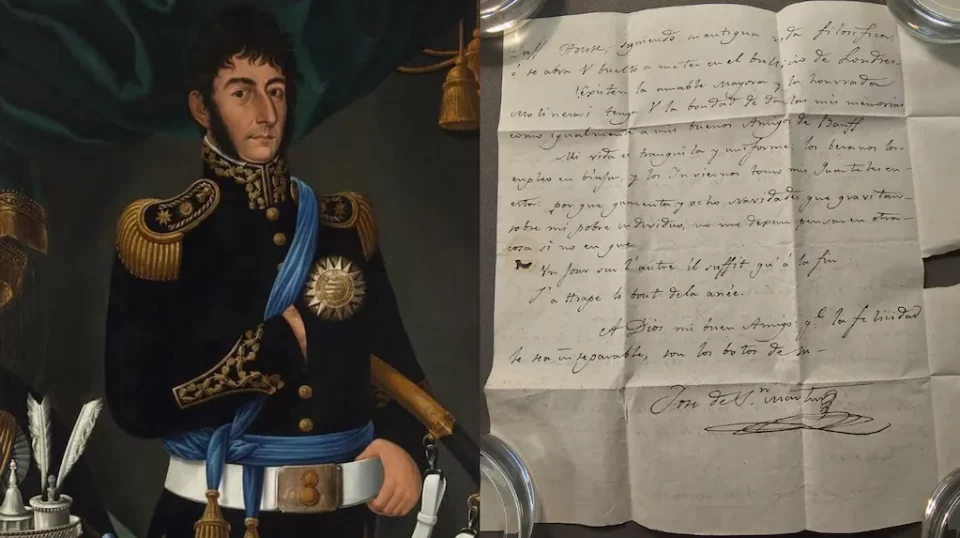 Duff House, siguiendo su antigua vida filosofica,
ó se abra V buelto a meter en el bullicio de Londres.
Existen la amable Mayora y la honrrada
Molinera; tenga V la bondad de darlas mis memorias
como igualmente a mis buenos Amigos de Banff
Mi vida es tranquila y uniforme; los beranos los
empleo en biajar, y los Inviernos tomo mis Quarteles en
esta: por que quarenta y ocho Navidades que gravitan
sobre mi pobre individuo, no me dexan pensar en otra
cosa si no en que
Un Jour sur l'autre il suffit qu'á la fin
J'atrape le bout de la anée.
A Dios mi buen Amigo q.e la felicidad
le sea inseparable, son los botos de su
Jose de S.n Martin